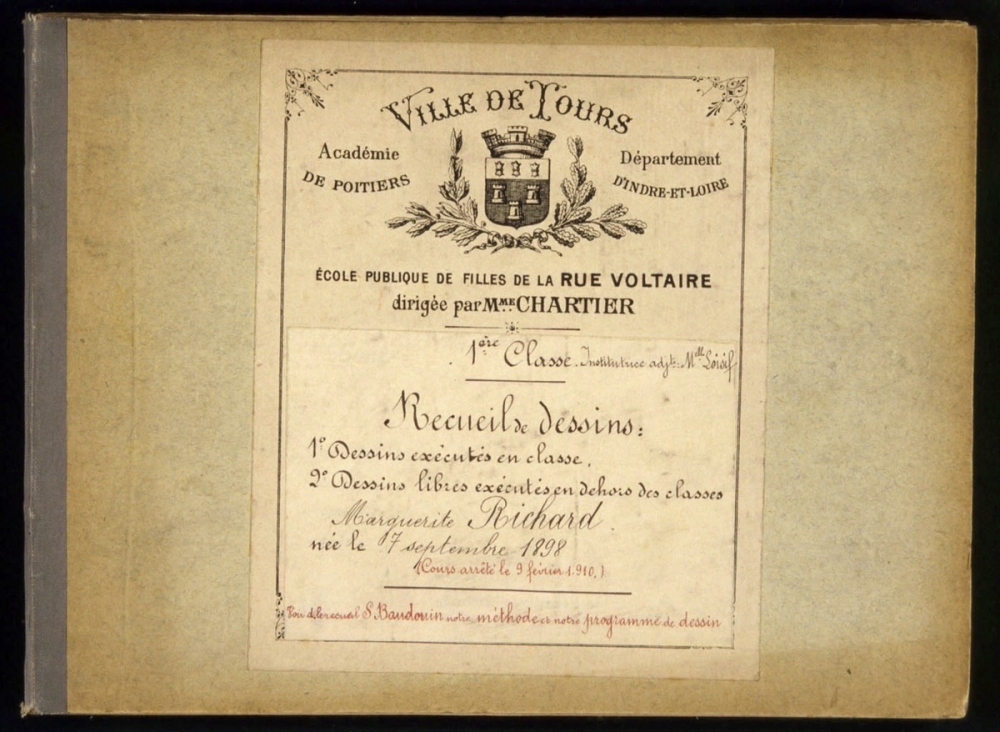 VILLE DE TOURS
Académie
DE POITIERS
Département
D'INDRE-ET-LOIRE
ÉCOLE PUBLIQUE DE FILLES DE LA RUE VOLTAIRE
dirigée par MME CHARTIER
1ère Classe. Institutrice adjte: Melle
Recueil de dessins:
1° Dessins exécutés en classe.
2° Dessins libres exécutés en dehors des classes
Marguerite Richard.
née le 7 septembre 1898
(Cours arrêté le 9 février 1.910.)
Voir le recueil S. Baudouin notre méthode et notre programme de dessin